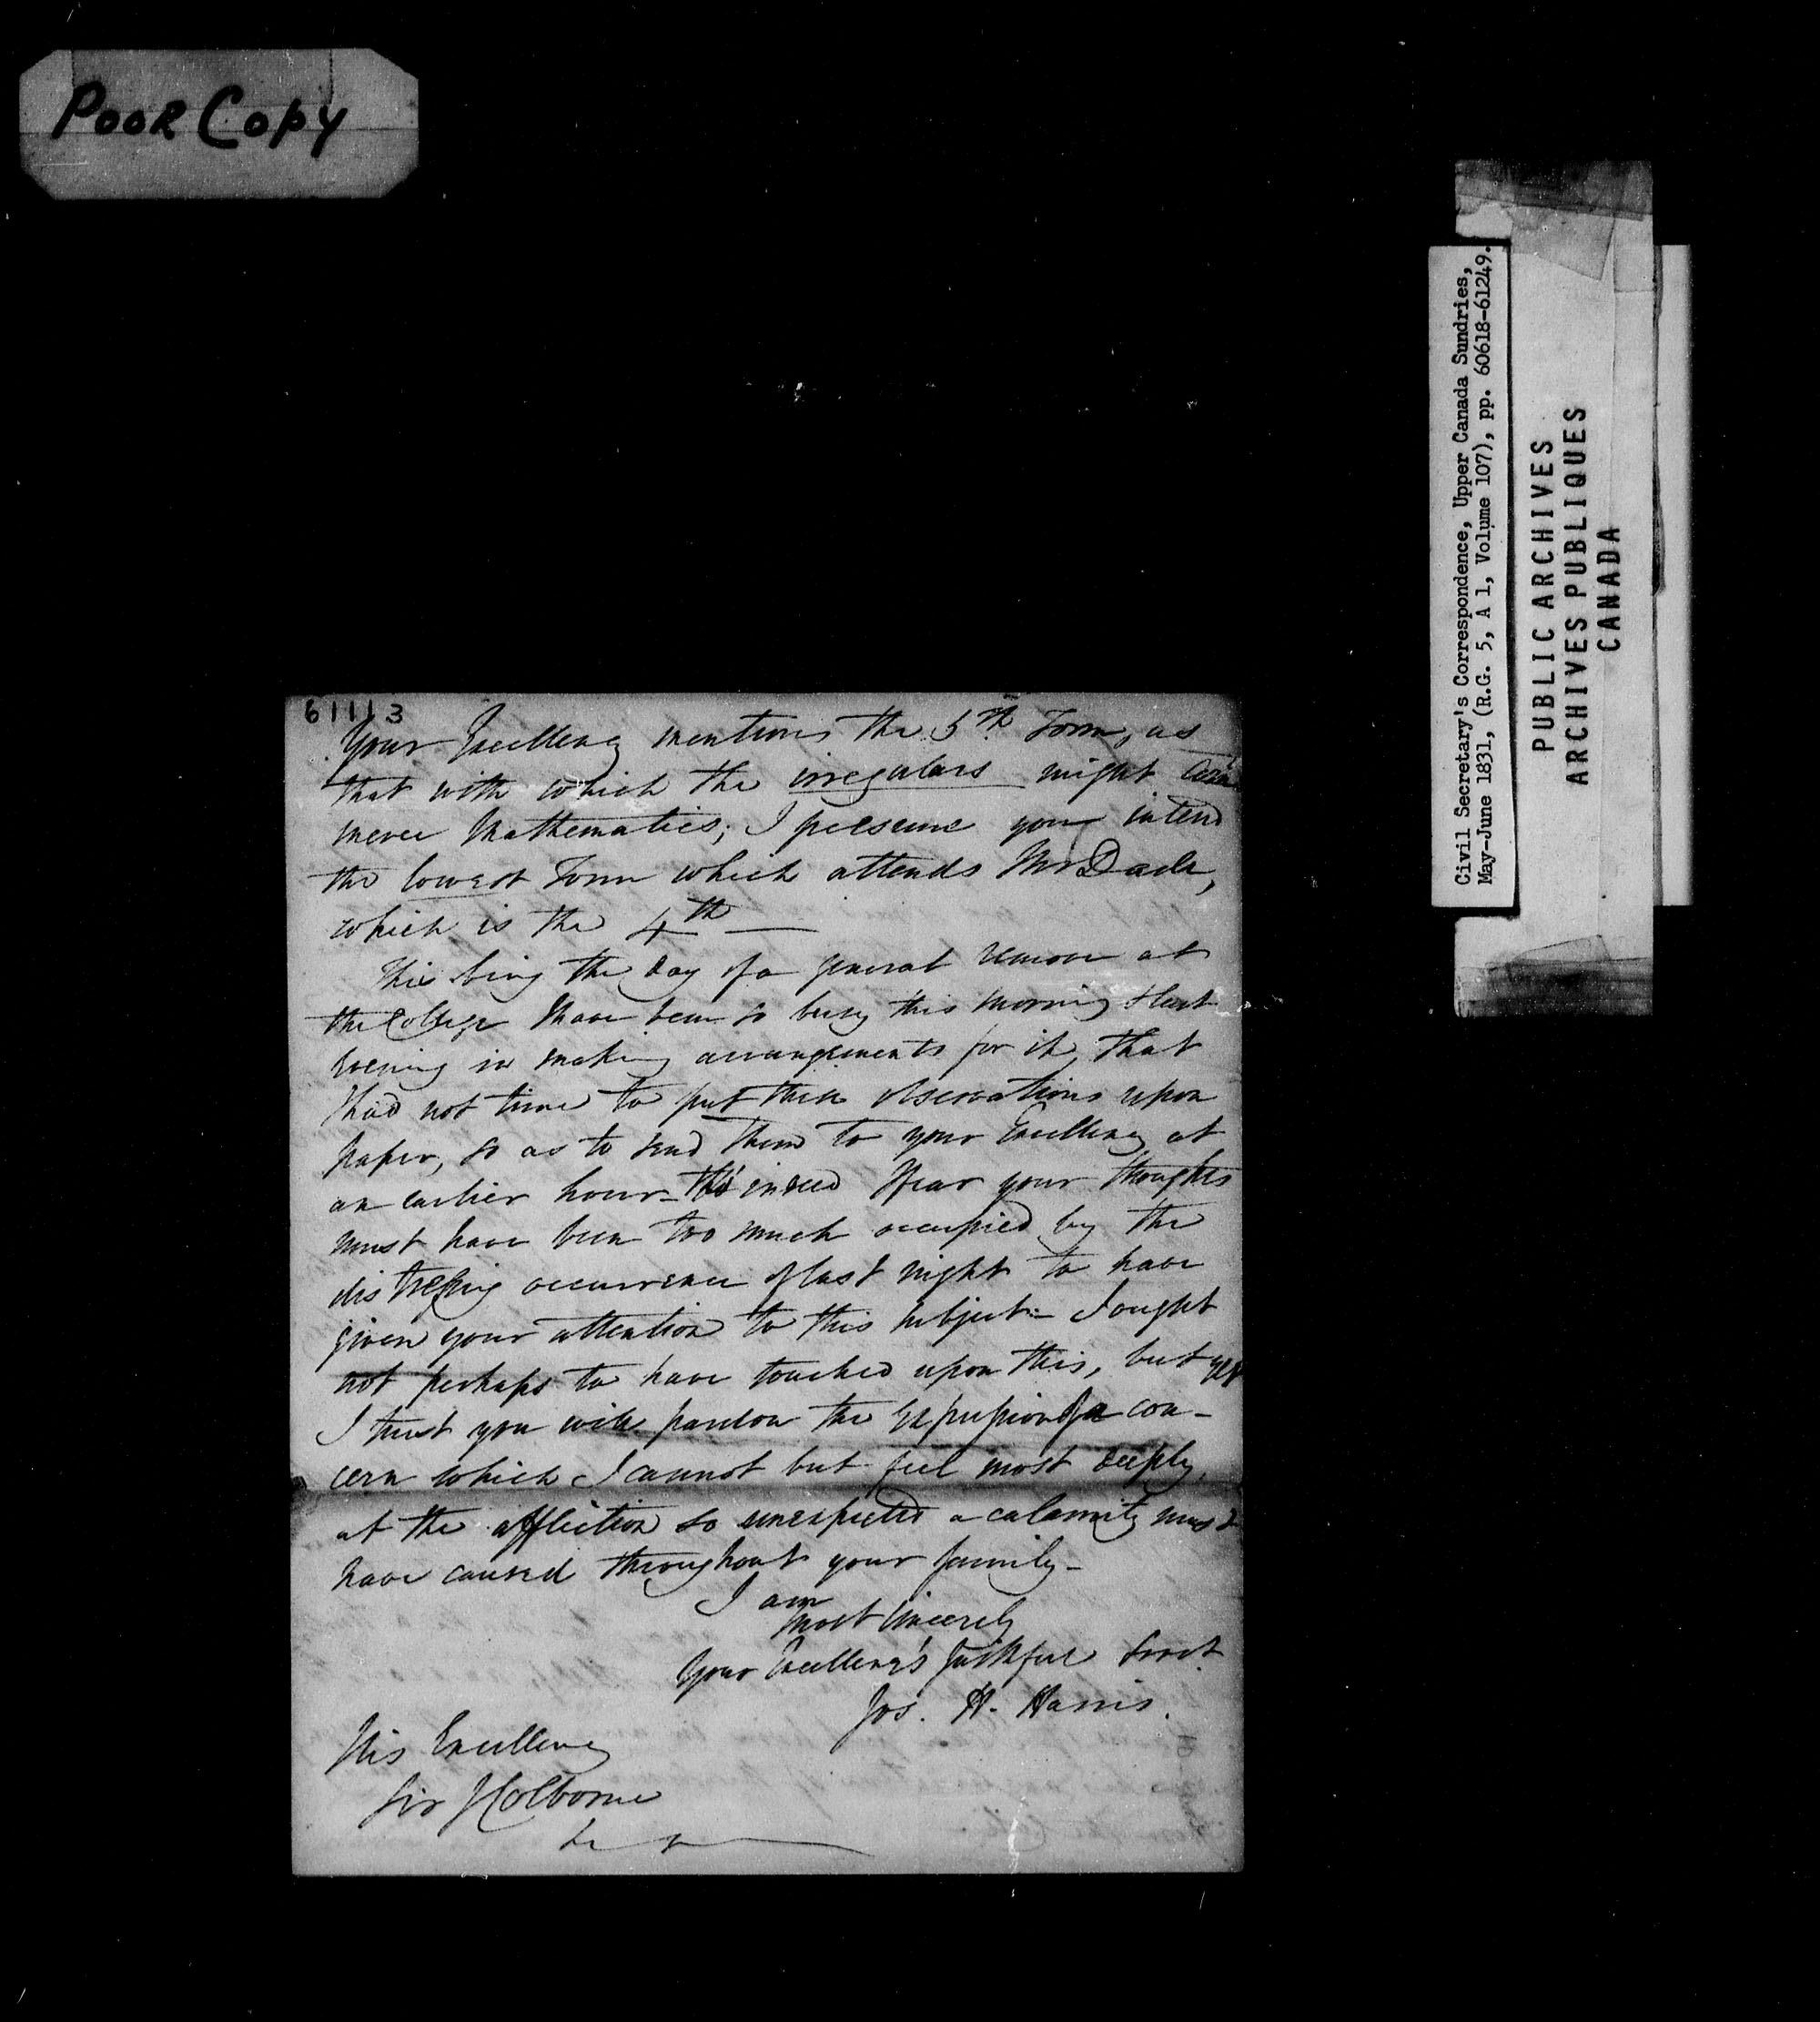 POOR COPY
61113
Your Excellency mentions the 5th Form, as
that with which the irregulars might com
mence Mathematics; I presume you intend
the lowest Form which attends Mr Dade,
which is the 4th —
This being the day of a general remove at
the College I have been so busy this morning & last
evening in making arrangements for it, that
I had not time to put these observations upon
paper, so as to send them to your Excellency at
an earlier hour — tho' indeed I fear your thoughts
must have been too much occupied by the
distressing occurrence of last night to have
given your attention to this subject — I ought
not perhaps to have touched upon this, but yet
I trust you will pardon the expression of a con-
cern which I cannot but feel most deeply,
at the affliction so unexpected a calamity must
have caused throughout your family —
I am
most sincerely
Your Excellency's faithful Servt
Jos. H. Harris.
His Excellency
Sir J Colborne
Civil Secretary's Correspondence, Upper Canada Sundries,
May-June 1831, (R.G. 5, A 1, Volume 107), pp. 60618-61249.
PUBLIC ARCHIVES
ARCHIVES PUBLIQUES
CANADA